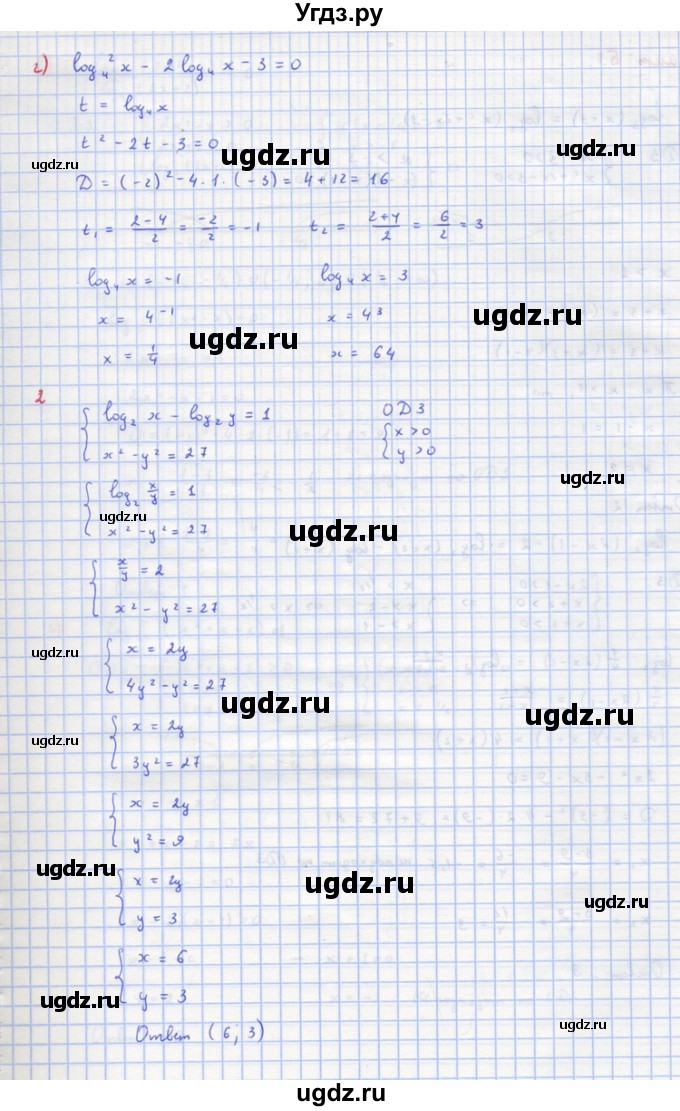 Угдз.ру
г) log₄²x - 2 log₄x - 3 = 0
t = log₄x
t² - 2t - 3 = 0
ugdz.ru ugdz.ru ugdz.ru
D = (-2)² - 4·1·(-3) = 4 + 12 = 16
t₁ = (2-4)/2 = -2/2 = -1 t₂ = (2+4)/2 = 6/2 = 3
log₄x = -1 log₄x = 3
x = 4⁻¹ x = 4³
ugdz.ru ugdz.ru
x = 1/4 x = 64
2
{ log₂ x - log₂ y = 1 ОДЗ
x² - y² = 27 { x > 0
y > 0
ugdz.ru
{ log₂ x/y = 1
ugdz.ru ugdz.ru
x² - y² = 27
{ x/y = 2
x² - y² = 27
ugdz.ru ugdz.ru
{ x = 2y
4y² - y² = 27
ugdz.ru ugdz.ru
{ x = 2y
ugdz.ru
3y² = 27
{ x = 2y
y² = 9
ugdz.ru ugdz.ru
{ x = 2y
ugdz.ru
y = 3
{ x = 6
y = 3
ugdz.ru ugdz.ru
Ответ (6; 3)
ugdz.ru
ugdz.ru